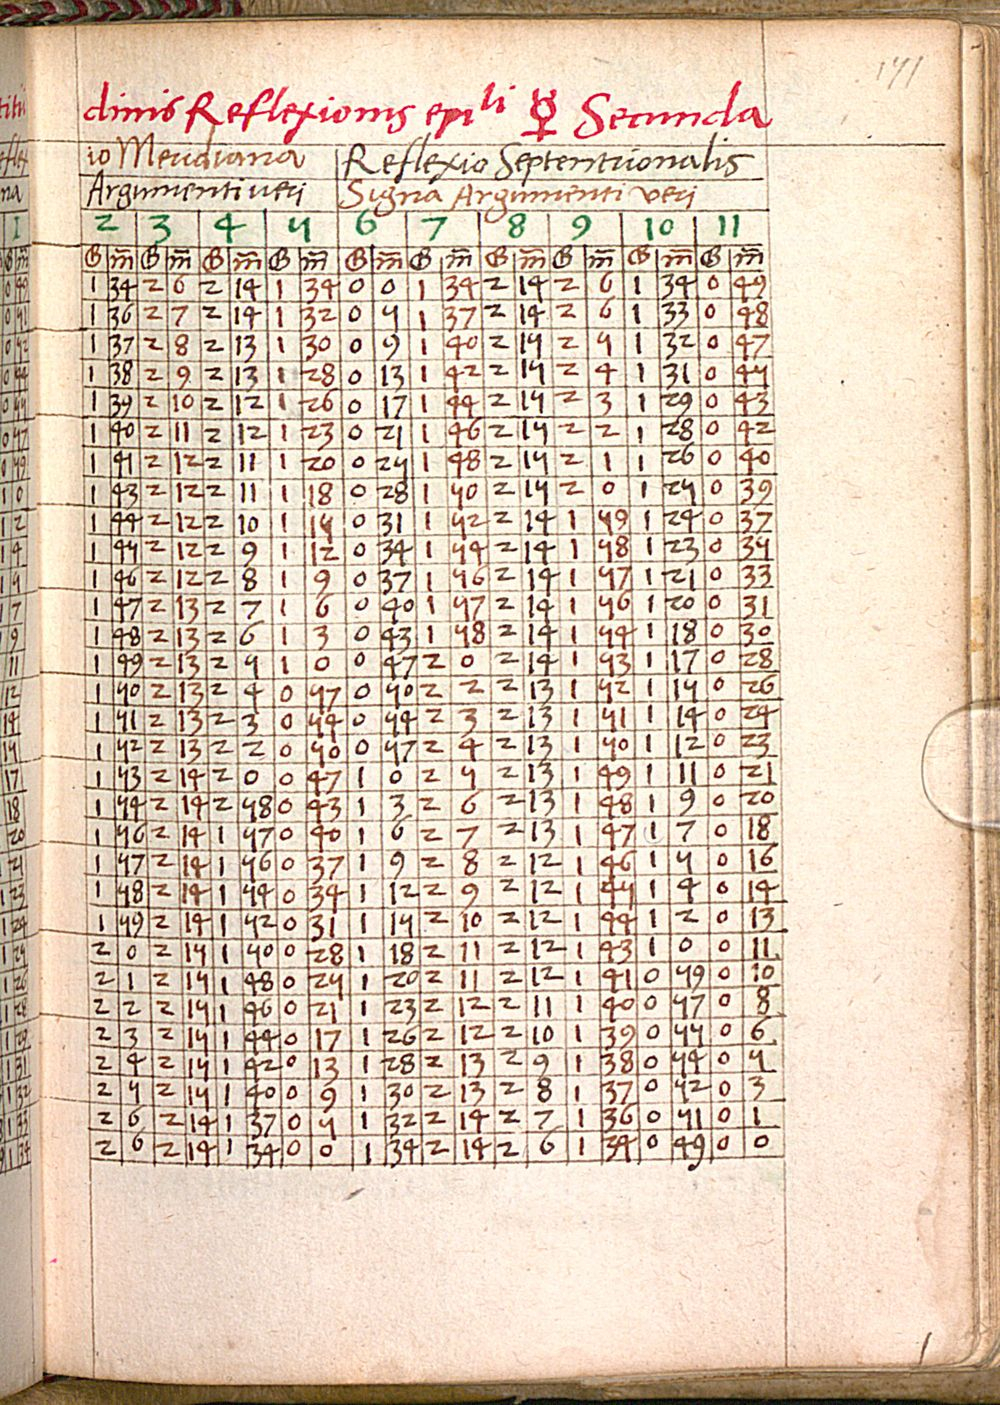 dinis Reflexionis epi^li ☿ Secunda
io Meridiana Reflexio Septentrionalis
Argumenti veri Signa Argumenti veri
2 3 4 5 6 7 8 9 10 11
G m̅ G m̅ G m̅ G m̅ G m̅ G m̅ G m̅ G m̅ G m̅ G m̅
1 34 2 6 2 14 1 34 0 0 1 34 2 14 2 6 1 34 0 49
1 36 2 7 2 14 1 32 0 5 1 37 2 14 2 6 1 33 0 48
1 37 2 8 2 13 1 30 0 9 1 40 2 15 2 5 1 32 0 47
1 38 2 9 2 13 1 28 0 13 1 42 2 15 2 4 1 31 0 45
1 39 2 10 2 12 1 26 0 17 1 44 2 15 2 3 1 29 0 43
1 40 2 11 2 12 1 23 0 21 1 46 2 15 2 2 1 28 0 42
1 41 2 12 2 11 1 20 0 25 1 48 2 15 2 1 1 26 0 40
1 43 2 12 2 11 1 18 0 28 1 50 2 15 2 0 1 25 0 39
1 44 2 12 2 10 1 15 0 31 1 52 2 14 1 59 1 24 0 37
1 45 2 12 2 9 1 12 0 34 1 54 2 14 1 58 1 23 0 35
1 46 2 12 2 8 1 9 0 37 1 56 2 14 1 57 1 21 0 33
1 47 2 13 2 7 1 6 0 40 1 57 2 14 1 56 1 20 0 31
1 48 2 13 2 6 1 3 0 43 1 58 2 14 1 54 1 18 0 30
1 49 2 13 2 5 1 0 0 47 2 0 2 14 1 53 1 17 0 28
1 50 2 13 2 4 0 57 0 50 2 2 2 13 1 52 1 15 0 26
1 51 2 13 2 3 0 54 0 54 2 3 2 13 1 51 1 14 0 24
1 52 2 13 2 2 0 50 0 57 2 4 2 13 1 50 1 12 0 23
1 53 2 14 2 0 0 47 1 0 2 5 2 13 1 49 1 11 0 21
1 54 2 14 2 58 0 43 1 3 2 6 2 13 1 48 1 9 0 20
1 56 2 14 1 57 0 40 1 6 2 7 2 13 1 47 1 7 0 18
1 57 2 14 1 56 0 37 1 9 2 8 2 12 1 46 1 5 0 16
1 58 2 14 1 54 0 34 1 12 2 9 2 12 1 45 1 4 0 14
1 59 2 14 1 52 0 31 1 15 2 10 2 12 1 44 1 2 0 13
2 0 2 15 1 50 0 28 1 18 2 11 2 12 1 43 1 0 0 11
2 1 2 15 1 48 0 25 1 20 2 11 2 12 1 41 0 59 0 10
2 2 2 15 1 46 0 21 1 23 2 12 2 11 1 40 0 57 0 8
2 3 2 15 1 44 0 17 1 26 2 12 2 10 1 39 0 55 0 6
2 4 2 15 1 42 0 13 1 28 2 13 2 9 1 38 0 54 0 5
2 5 2 15 1 40 0 9 1 30 2 13 2 8 1 37 0 52 0 3
2 6 2 14 1 37 0 5 1 32 2 14 2 7 1 36 0 51 0 1
2 6 2 14 1 34 0 0 1 34 2 14 2 6 1 34 0 49 0 0